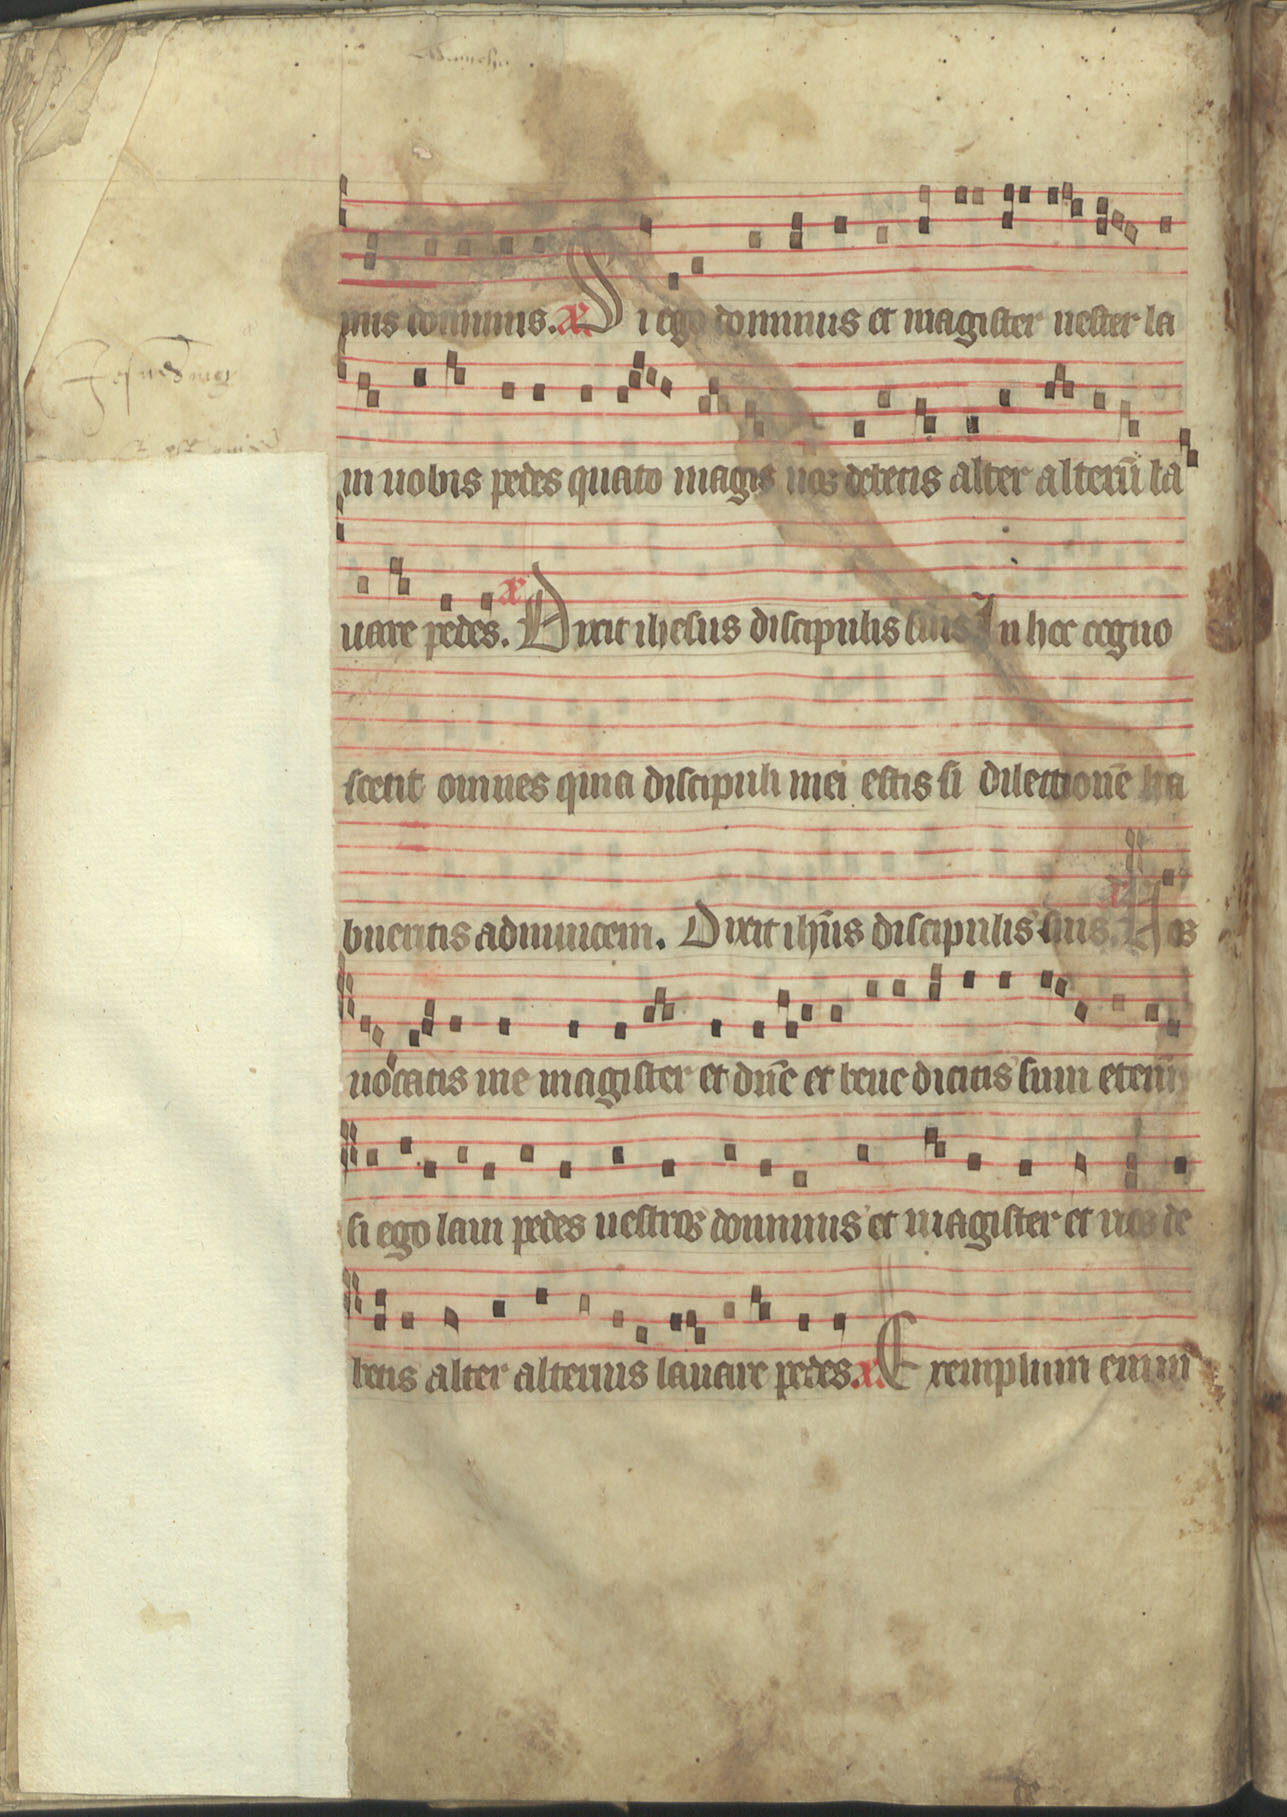 pus dominus. Si ego dominus et magister uester la
ui uobis pedes quāto magis uos debetis alter alterū la
uare pedes. Dixit ihesus discipulis suis In hoc cogno
scent omnes quia discipuli mei estis si dilectionē ha
bueritis adinuicem. Dixit ihūs discipulis suis. Uos
uocatis me magister et dn̄e et bene dicitis sum etenī
si ego laui pedes uestros dominus et magister et uos de
betis alter alterius lauare pedes. Exemplum enim